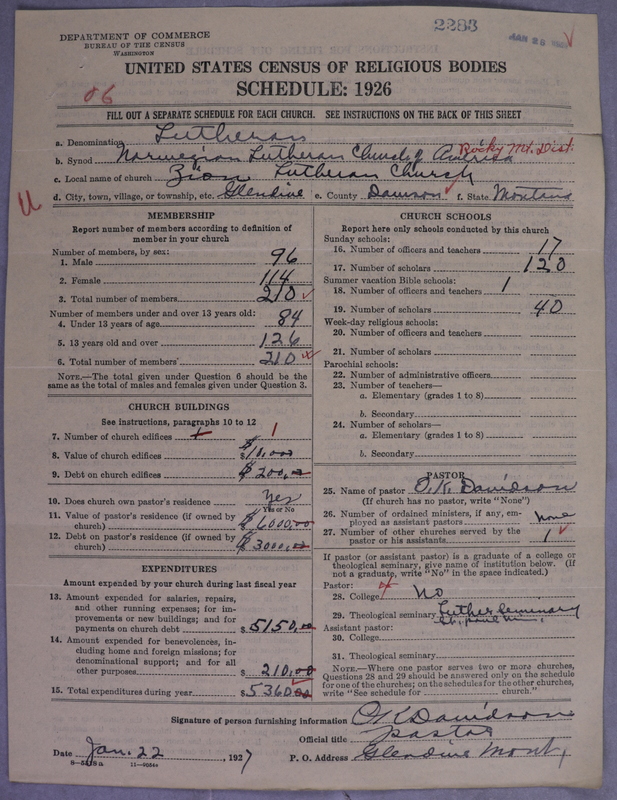 2283
JAN 28
DEPARTMENT OF COMMERCE
BUREAU OF THE CENSUS
WASHINGTON
UNITED STATES CENSUS OF RELIGIOUS BODIES
SCHEDULE: 1926
86
FILL OUT A SEPARATE SCHEDULE FOR EACH CHURCH. SEE INSTRUCTIONS ON THE BACK OF THIS SHEET
a. Denomination Lutheran
b. Synod Norwegian Lutheran Church of America Rocky Mt. Dist.
c. Local name of church Zion Lutheran Church
d. City, town, village, or township, etc. Glendive e. County Dawson f. State Montana
U
MEMBERSHIP
Report number of members according to definition of
member in your church
Number of members, by sex:
1. Male 96
2. Female 114
3. Total number of members 210
Number of members under and over 13 years old:
4. Under 13 years of age 84
5. 13 years old and over 126
6. Total number of members 210
NOTE.—The total given under Question 6 should be the
same as the total of males and females given under Question 3.
CHURCH BUILDINGS
See instructions, paragraphs 10 to 12
7. Number of church edifices 1
8. Value of church edifices $10,000
9. Debt on church edifices $200,00
10. Does church own pastor's residence Yes
Yes or No
11. Value of pastor's residence (if owned by
church) $6000,00
12. Debt on pastor's residence (if owned by
church) $3000,00
EXPENDITURES
Amount expended by your church during last fiscal year
13. Amount expended for salaries, repairs,
and other running expenses; for im-
provements or new buildings; and for
payments on church debt $5150,00
14. Amount expended for benevolences, in-
cluding home and foreign missions; for
denominational support; and for all
other purposes $210,00
15. Total expenditures during year $5360.00
CHURCH SCHOOLS
Report here only schools conducted by this church
Sunday schools:
16. Number of officers and teachers 17
17. Number of scholars 120
Summer vacation Bible schools:
18. Number of officers and teachers 1
19. Number of scholars 40
Week-day religious schools:
20. Number of officers and teachers
21. Number of scholars
Parochial schools:
22. Number of administrative officers
23. Number of teachers—
a. Elementary (grades 1 to 8)
b. Secondary
24. Number of scholars—
a. Elementary (grades 1 to 8)
b. Secondary
PASTOR
25. Name of pastor O.K. Davidson
(If church has no pastor, write "None")
26. Number of ordained ministers, if any, em-
ployed as assistant pastors none
27. Number of other churches served by the
pastor or his assistants 1
If pastor (or assistant pastor) is a graduate of a college or
theological seminary, give name of institution below. (If
not a graduate, write "No" in the space indicated.)
Pastor:
28. College No
29. Theological seminary Luther Seminary
St. Paul
Assistant pastor:
30. College
31. Theological seminary
NOTE.—Where one pastor serves two or more churches,
Questions 28 and 29 should be answered only on the schedule
for one of the churches; on the schedules for the other churches,
write "See schedule for church."
Signature of person furnishing information O K Davidson
Official title pastor
Date Jan. 22, 1927 P. O. Address Glendive Mont,